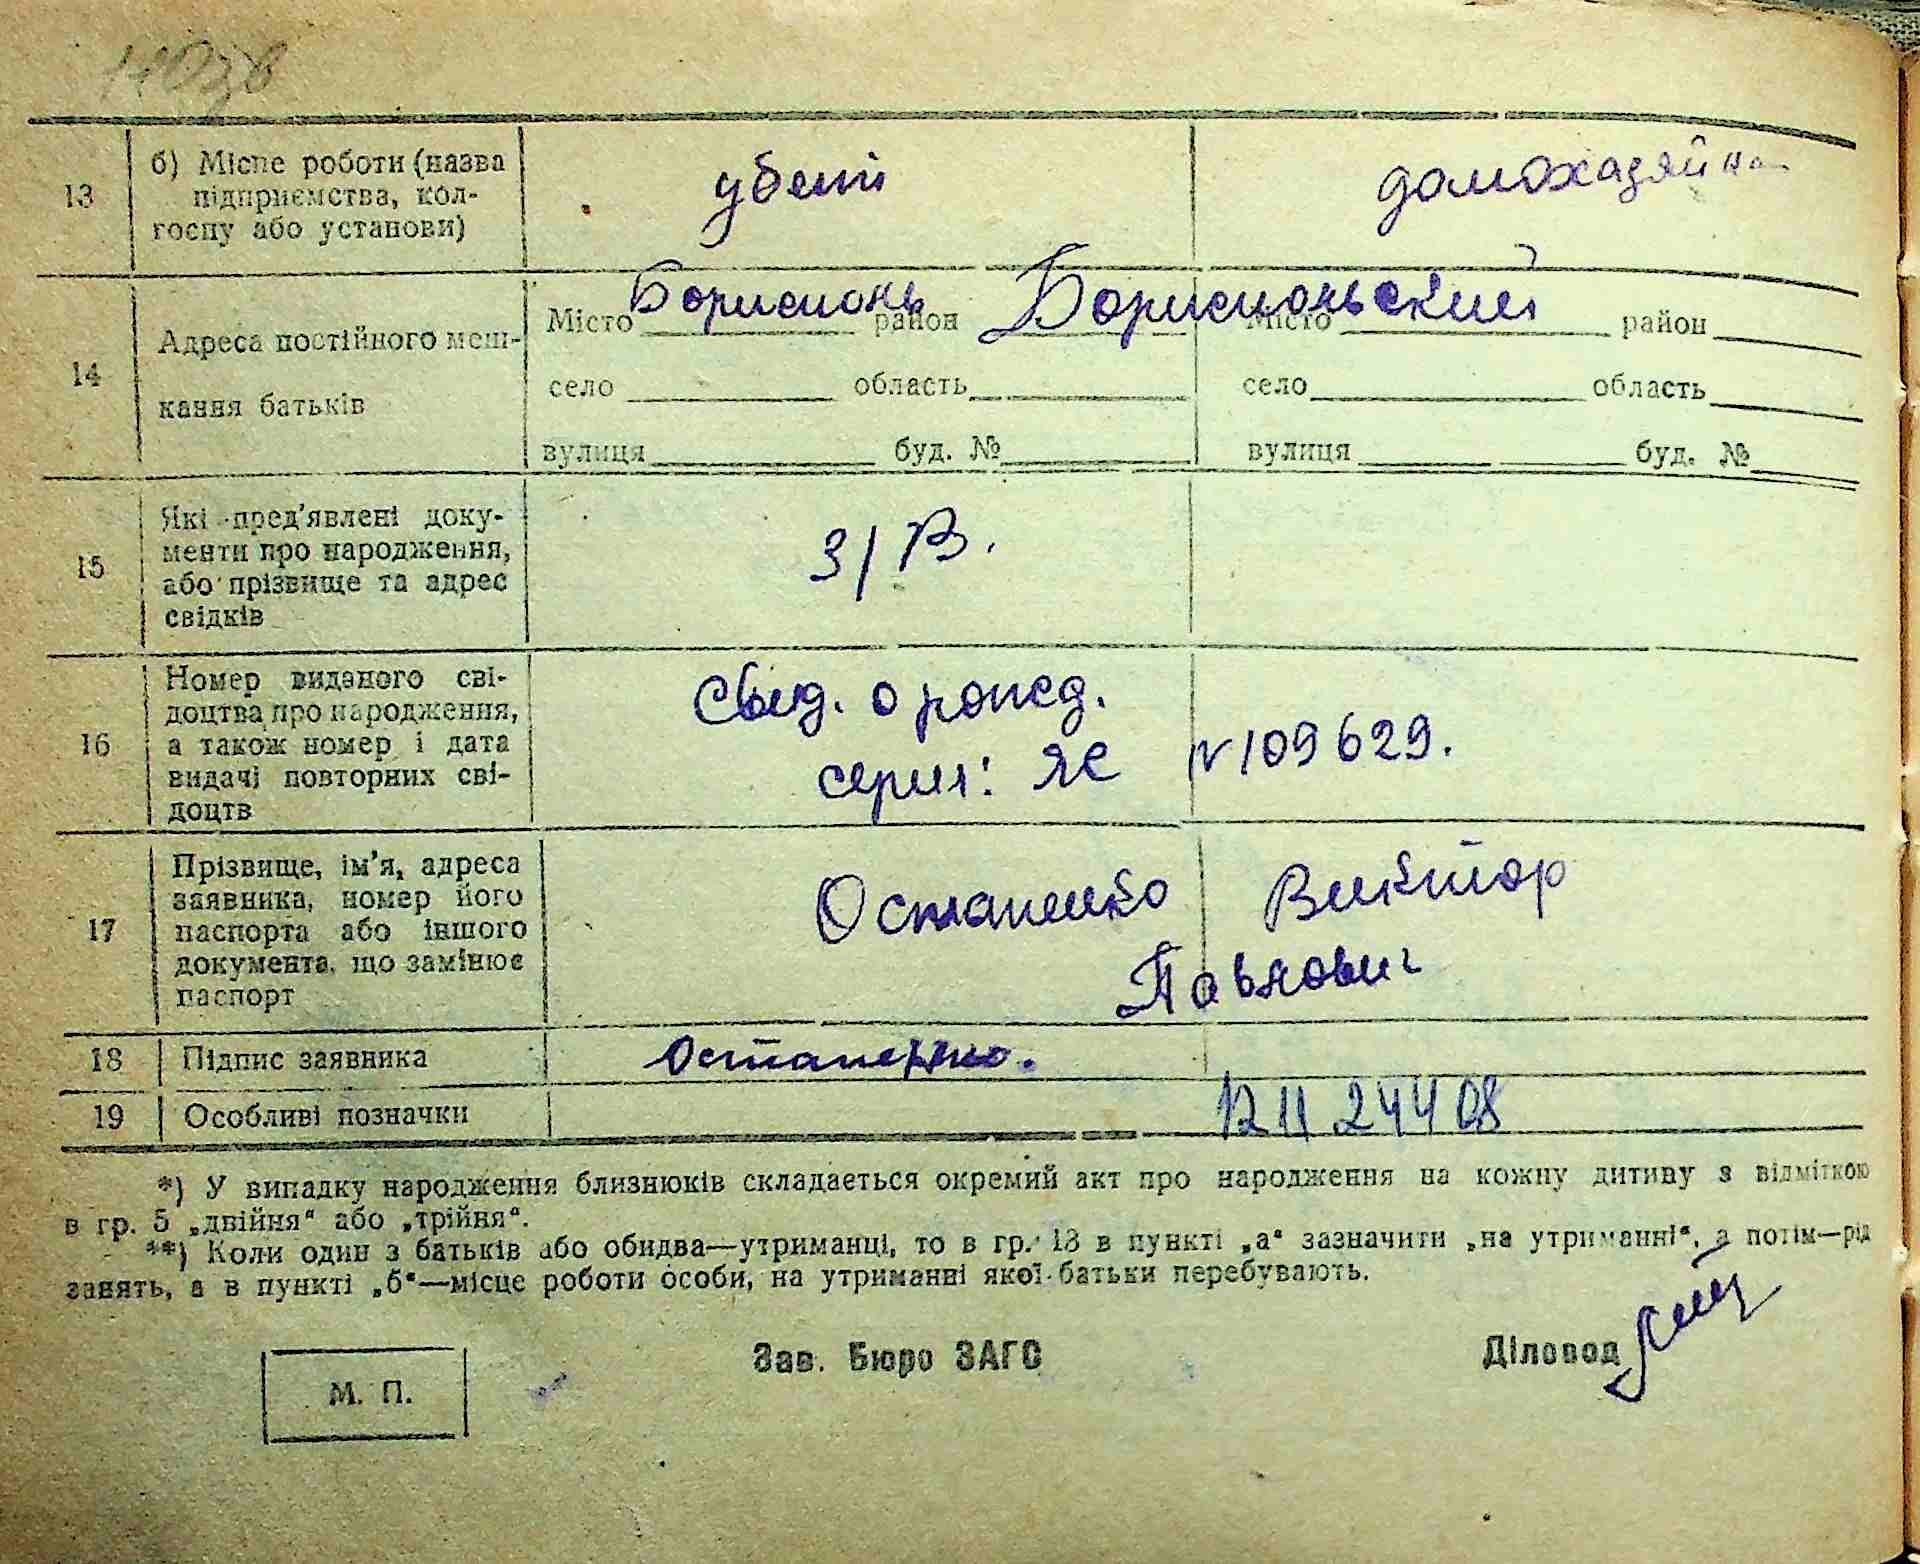 13
б) Місце роботи (назва
підприємства, кол-
госпу або установи)
убит
домохазяйка
14
Адреса постійного меш-
кання батьків
Місто Бориспонь район Бориспоньский
Місто район
село область
село область
вулиця буд. №
вулиця буд. №
15
Які пред'явлені доку-
менти про народження,
або прізвище та адрес
свідків
З/В.
16
Номер виданого сві-
доцтва про народження,
а також номер і дата
видачі повторних сві-
доцтв
Свид. о рожд.
серия: ЯЕ N 109629.
17
Прізвище, ім'я, адреса
заявника, номер його
паспорта або іншого
документа, що замінює
паспорт
Остапенко Виктор
Павлович
18 Підпис заявника Остапенко.
19 Особливі позначки
12 11 244 08
*) У випадку народження близнюків складається окремий акт про народження на кожну дитину з відміткою
в гр. 5 „двійня“ або „трійня“.
**) Коли один з батьків або обидва—утриманці, то в гр. 13 в пункті „а“ зазначити „на утриманні“, а потім—рід
занять, а в пункті „б“—місце роботи особи, на утриманні якої батьки перебувають.
М. П.
Зав. Бюро ЗАГС
Діловод